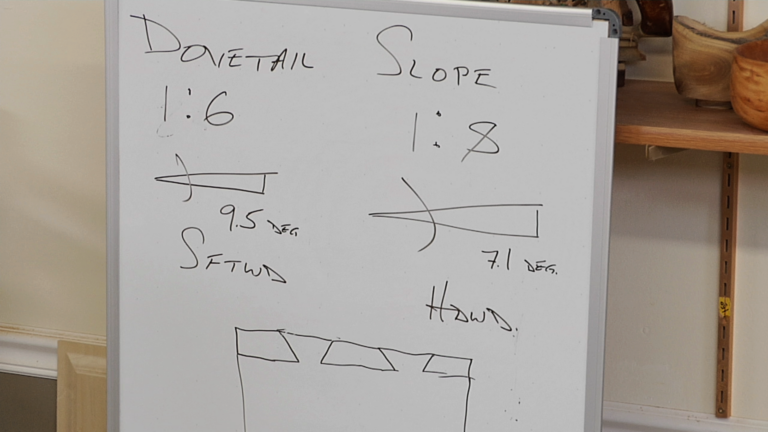 DOVETAIL SLOPE
1:6
1:8
9.5 DEG.
7.1 DEG.
SFTWD
HDWD.